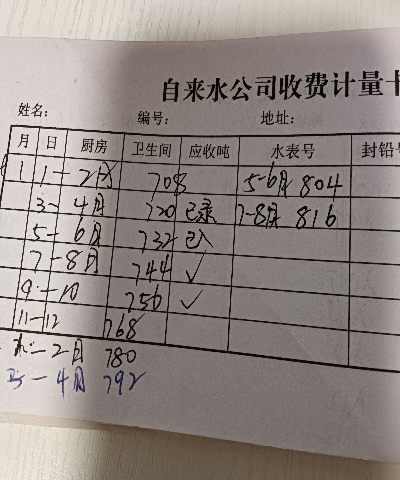 自来水公司收费计量卡
姓名： 编号： 地址：
月 日 厨房 卫生间 应收吨 水表号 封铅号
1 1－2月 708 5-6月 804
3－4月 720 已录 7-8月 816
5－6月 732 已入
7－8月 744 ✓
9－10 756 ✓
11－12 768
－2月 780
3－4月 792